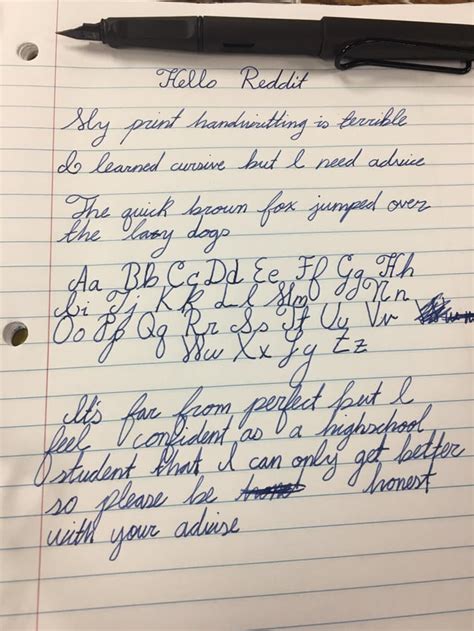 Hello Reddit
My print handwritting is terrible
I learned cursive but I need advice
The quick brown fox jumped over
the lazy dogs
Aa Bb Cc Dd Ee Ff Gg Hh
Ii Jj Kk Ll Mm Nn
Oo Pp Qq Rr Ss Tt Uu Vv
Ww Xx Yy Zz
It's far from perfect but I
feel confident as a highschool
student that I can only get better
so please be honest
with your advise